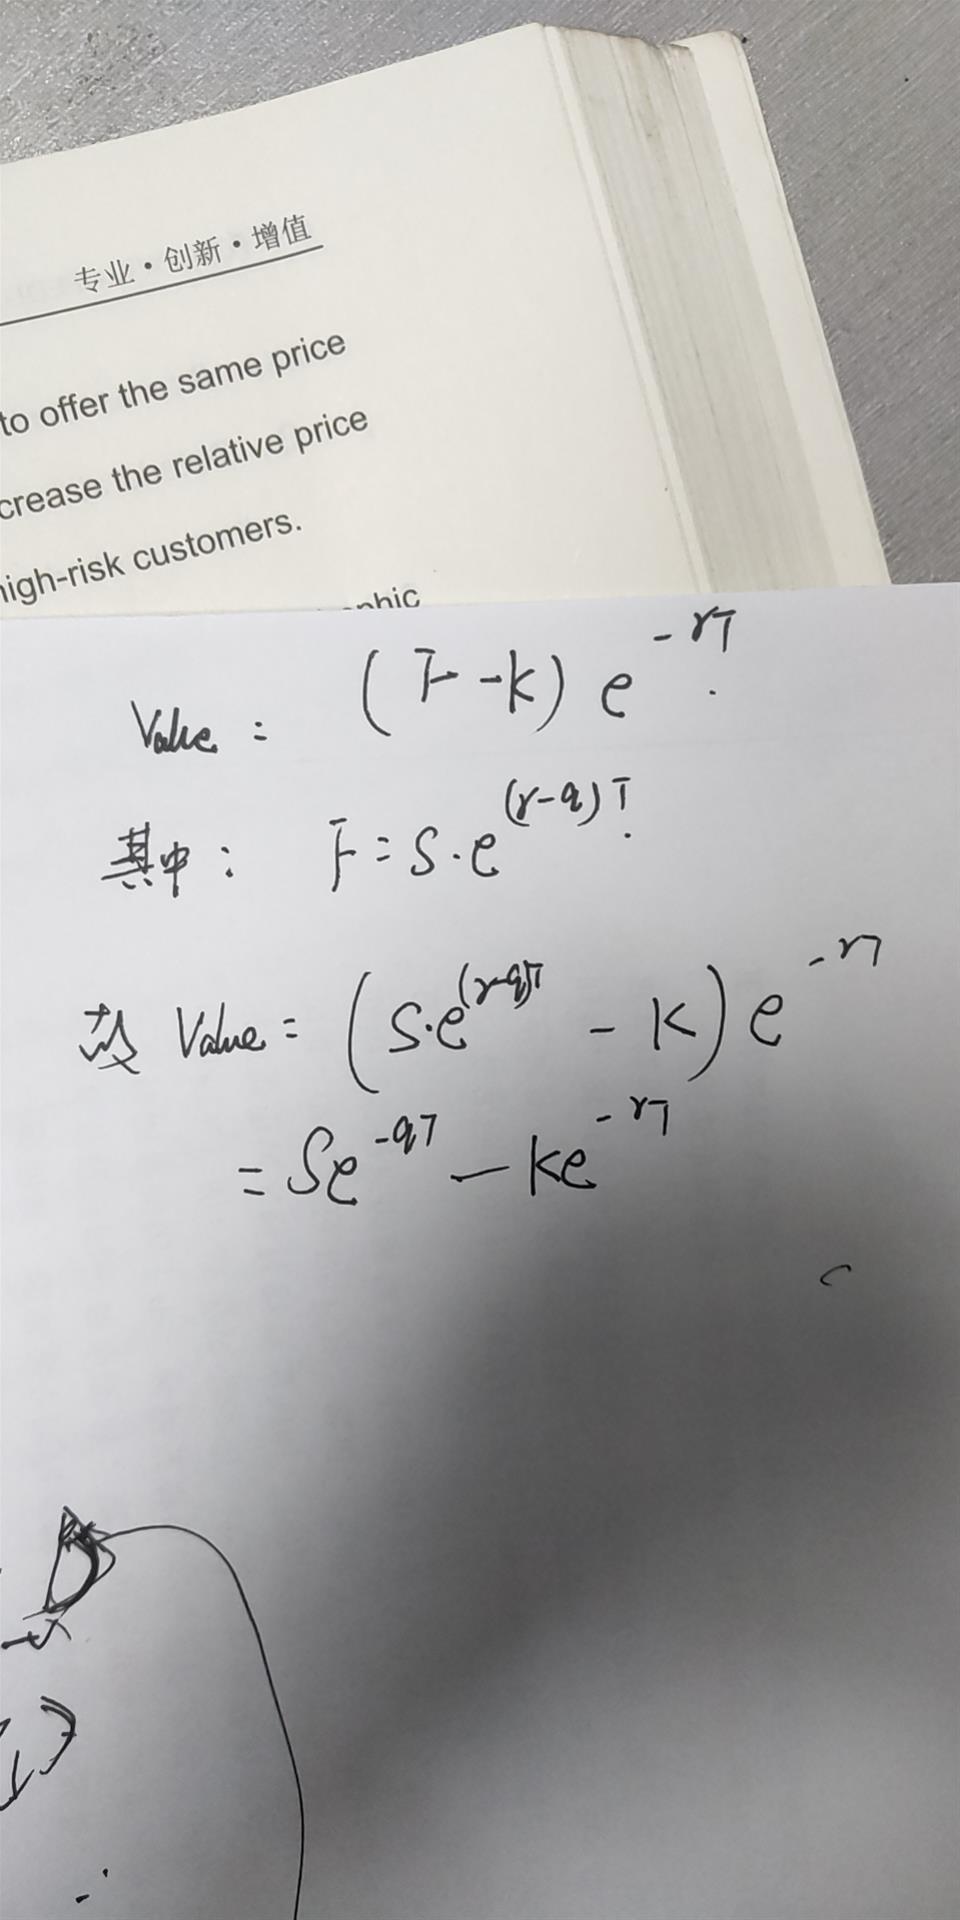 专业·创新·增值
to offer the same price
crease the relative price
high-risk customers.
phic
Value = (F-K) e^-rT.
其中: F = S.e^(r-q)T.
故 Value = (S.e^(r-q)T - K) e^-rT
= Se^-qT - Ke^-rT